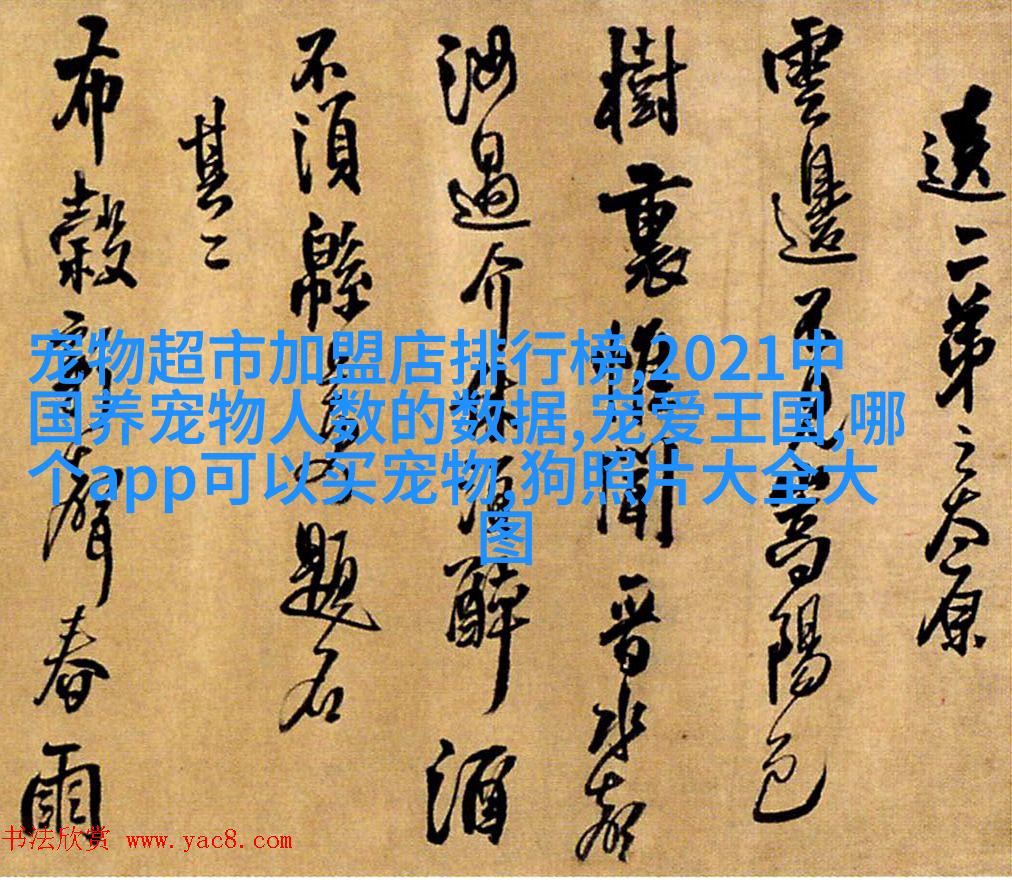 送二弟之太原
雲邊不見嵩陽色
樹裏惟聞晉水聲
汝過介休須醉酒
不須緜上題名
其二
布穀新聲春雨
宠物超市加盟店排行榜,2021中
国养宠物人数的数据,宠爱王国,哪
个app可以买宠物,狗照片大全大
图
书法欣赏 www.yac8.com